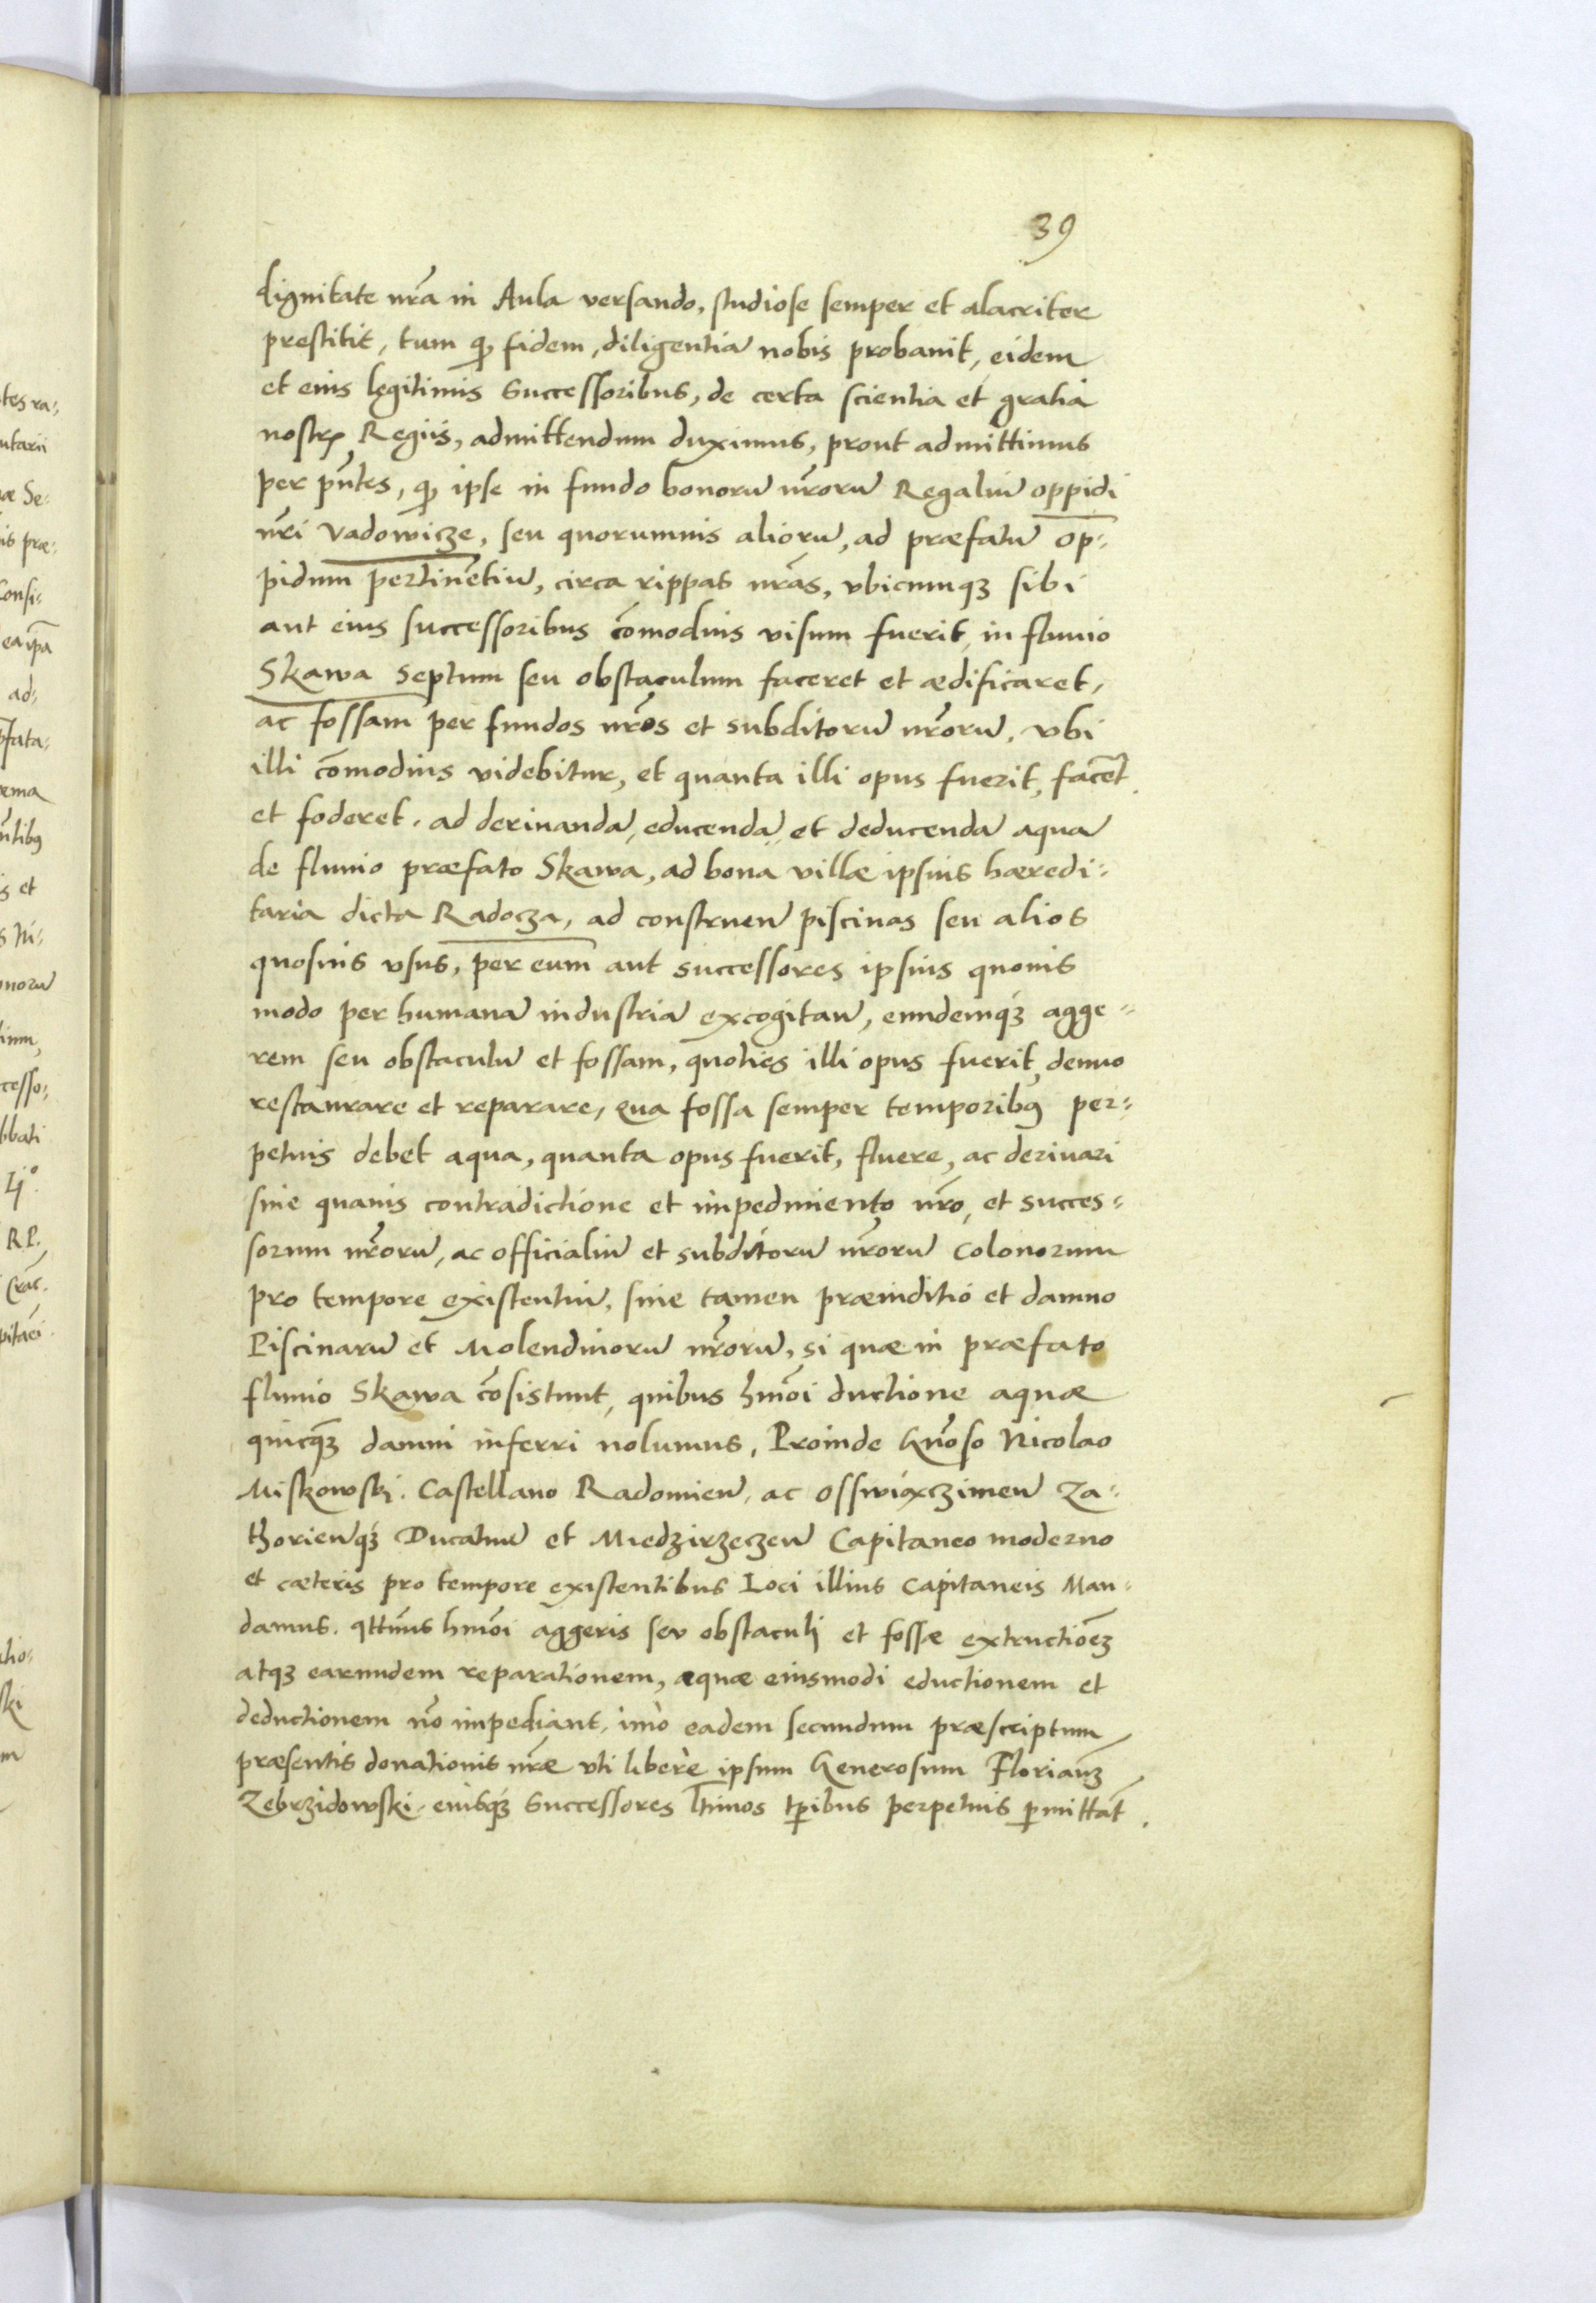 39
dignitate nr̃a in Aula versando, studiose semper et alacriter
prestitit, tum q̃ fidem, diligentiã nobis probavit, eidem
et eius legitimis Successoribus, de certa scientia et gratia
nostris Regiis, admittendum duximus, prout admittimus
per pñtes, q̃ ipse in fundo bonorũ nr̃orũ Regaliũ oppidi
nr̃i Vadowicze, seu quorumuis aliorũ, ad præfatũ op⸗
pidum pertinẽtiũ, circa rippas nr̃as, vbicumq₃ sibi
aut eius successoribus cõmodius visum fuerit, in fluuio
Skawa Septum seu obstaculum faceret et ædificaret,
ac fossam per fundos nr̃os et subditorũ nr̃orũ, vbi
illi cõmodius videbitur, et quanta illi opus fuerit, facẽt
et foderet, ad deriuandã, educendã, et deducendã aquã
de fluuio præfato Skawa, ad bona villæ ipsius hæredi⸗
taria dicta Radocza, ad construeñ piscinas seu alios
quosuis vsus, per eum aut successores ipsius quouis
modo per humanã industriã excogitañ, eundemq́₃ agge⸗
rem seu obstaculũ et fossam, quoties illi opus fuerit, denuo
restaurare et reparare, qua fossa semper temporibꝰ per⸗
petuis debet aqua, quanta opus fuerit, fluere, ac deriuari
sine quauis contradictione et impedimento nr̃o, et succes⸗
sorum nr̃orũ, ac officialiũ et subditorũ nr̃orũ colonorum
pro tempore existentiũ, sine tamen præiuditio et damno
Piscinarũ et Molendinorũ nr̃orũ, si quæ in præfato
fluuio Skawa cõsistunt, quibus hmõi ductione aquæ
quicq̃₃ damni inferri nolumus, Proinde Gñoso Nicolao
Miskowski. Castellano Radomieñ, ac Osswiączimeñ Za⸗
thorieñq́₃ Ducatuũ et Miedzirzeczeñ Capitaneo moderno
et cæteris pro tempore existentibus Loci illius Capitaneis Man⸗
damus. qttñus hmõi aggeris seu obstaculj et fossæ extructiõe₃
atq₃ earundem reparationem, aquæ eiusmodi eductionem et
deductionem nõ impediant, imò eadem secundum præscriptum
præsentis donationis nr̃æ vti liberè ipsum Generosum Florianũ₃
Zebrzidowski, eiusq́₃ Successores lt̃imos tp̃ribus perpetuis p̱mittãt.